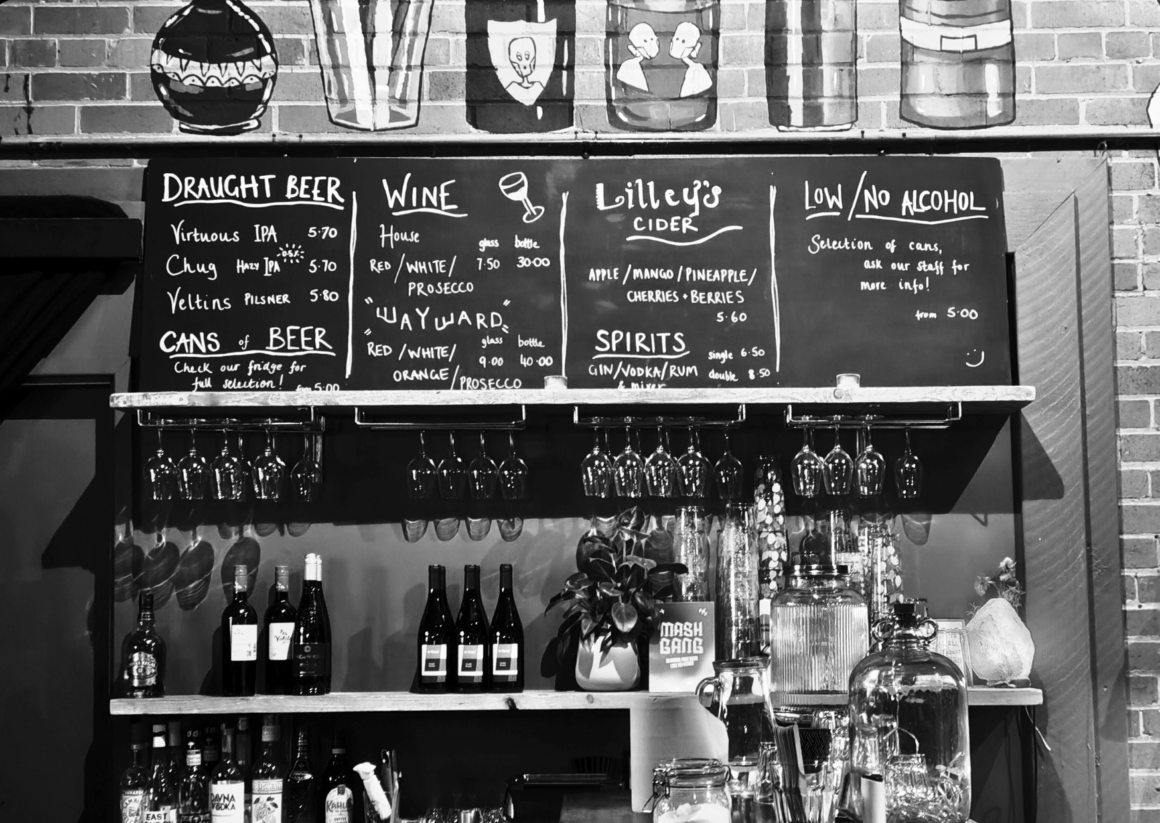 DRAUGHT BEER
Virtuous IPA 5.70
Chug HAZY IPA 5.70
Veltins PILSNER 5.80
CANS of BEER
Check our fridge for
full selection! from 5.00
WINE
House glass bottle
RED/WHITE/ 7.50 30.00
PROSECCO
"WAYWARD"
glass bottle
RED/WHITE/ 9.00 40.00
ORANGE/PROSECCO
Lilley's
CIDER
APPLE/MANGO/PINEAPPLE/
CHERRIES + BERRIES
5.60
SPIRITS
single 6.50
GIN/VODKA/RUM double 8.50
& mixer
LOW/NO ALCOHOL
Selection of cans,
ask our staff for
more info!
from 5.00
MASH
GANG
VODKA
EAST